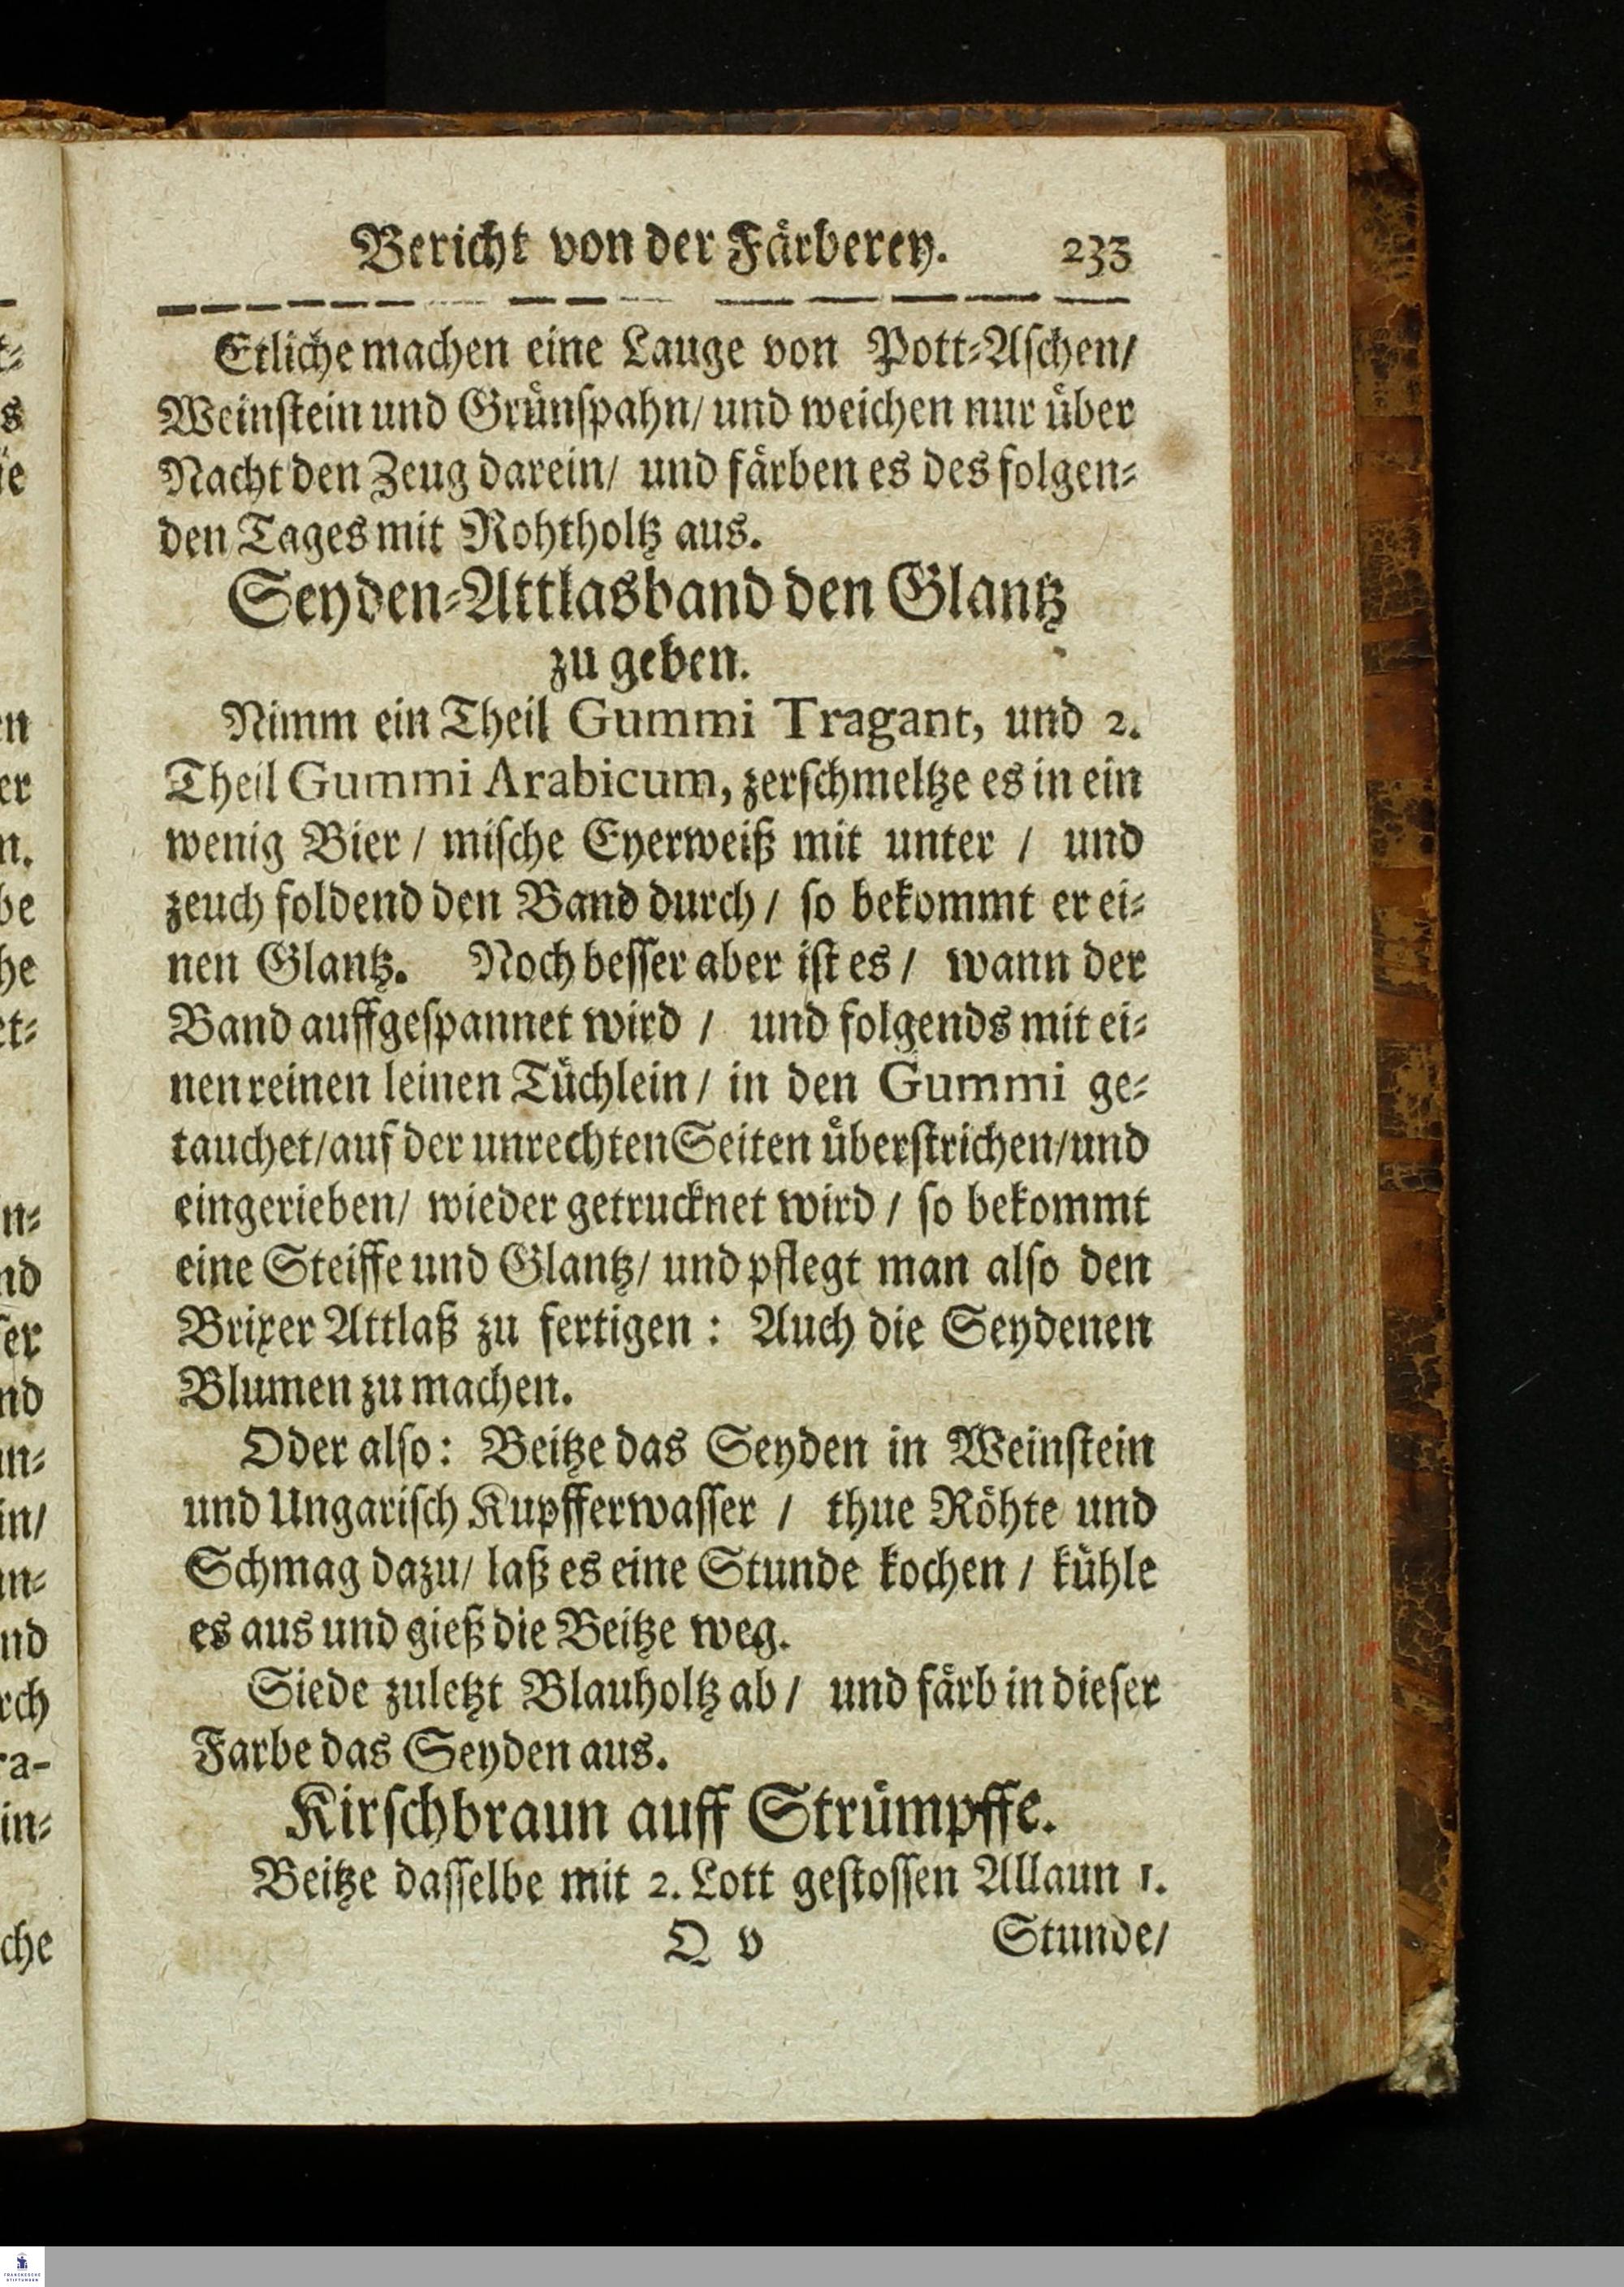 Bericht von der Färberey. 233
Etliche machen eine Lauge von Pott-Aschen/
Weinstein und Grünspahn/ und weichen nur über
Nacht den Zeug darein/ und färben es des folgen-
den Tages mit Rohtholtz aus.
Seyden-Attlasband den Glantz
zu geben.
Nimm ein Theil Gummi Tragant, und 2.
Theil Gummi Arabicum, zerschmeltze es in ein
wenig Bier / mische Eyerweiß mit unter / und
zeuch foldend den Band durch / so bekommt er ei-
nen Glantz. Noch besser aber ist es / wann der
Band auffgespannet wird / und folgends mit ei-
nen reinen leinen Tüchlein / in den Gummi ge-
tauchet/auf der unrechten Seiten überstrichen/und
eingerieben/ wieder getrucknet wird / so bekommt
eine Steiffe und Glantz/ und pflegt man also den
Brixer Attlaß zu fertigen : Auch die Seydenen
Blumen zu machen.
Oder also: Beitze das Seyden in Weinstein
und Ungarisch Kupfferwasser / thue Röhte und
Schmag dazu/ laß es eine Stunde kochen / kühle
es aus und gieß die Beitze weg.
Siede zuletzt Blauholtz ab / und färb in dieser
Farbe das Seyden aus.
Kirschbraun auff Strümpffe.
Beitze dasselbe mit 2. Lott gestossen Allaun 1.
Q v Stunde/
FRANCKESCHE
STIFTUNGEN